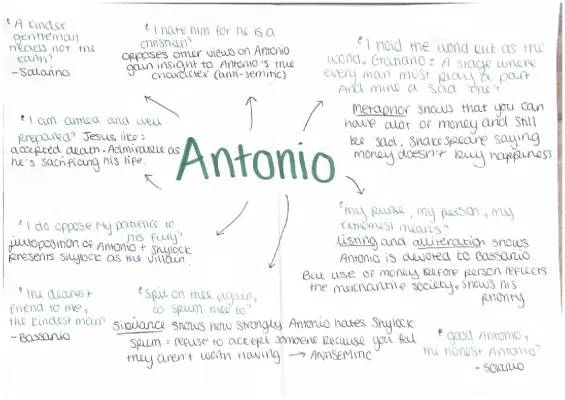 "A kinder
gentleman
treads not the
earth"
- Salarino
"I hate him for he is a
christian"
opposes other views on Antonio
gain insight to Antonio's true
character (anti-semitic)
"I hold the world but as the
world, Gratiano: A stage where
every man must play a part
And mine a sad one"
Metaphor shows that you can
have alot of money and still
be sad. Shakespeare saying
money doesn't buy happiness
"I am armed and well
prepared" Jesus like:
accepted death. Admirable as
he's sacrificing his life.
Antonio
"I do oppose my patience to
his fury"
juxtoposition of Antonio + Shylock
presents Shylock as the villain.
"my purse, my person, my
extremest means"
listing and alliteration shows
Antonio is devoted to Bassanio.
But use of money before person reflects
the merchantile society, shows his
priority
"The dearest
friend to me,
the kindest man"
- Bassanio
"Spit on thee again,
to spurn thee to"
Sibilance shows how strongly Antonio hates Shylock
spurn = refuse to accept someone because you feel
they aren't worth having → ANTISEMITIC
"good Antonio,
the honest Antonio"
- Solanio